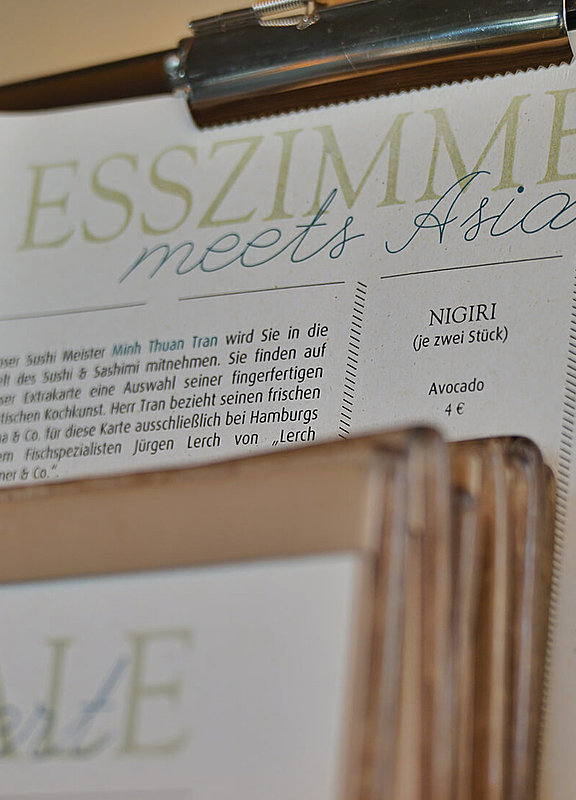 ESSZIMME
meets Asia
nser Sushi Meister Minh Thuan Tran wird Sie in die
elt des Sushi & Sashimi mitnehmen. Sie finden auf
ser Extrakarte eine Auswahl seiner fingerfertigen
tischen Kochkunst. Herr Tran bezieht seinen frischen
a & Co. für diese Karte ausschließlich bei Hamburgs
em Fischspezialisten Jürgen Lerch von „Lerch
ner & Co.“.
NIGIRI
(je zwei Stück)
Avocado
4 €
ALE
ert